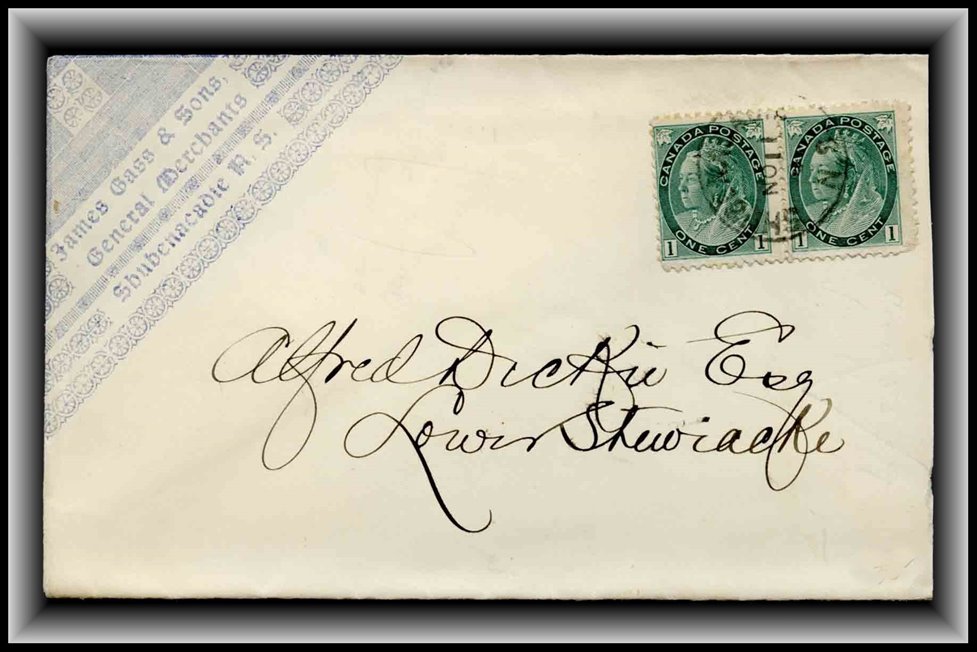 James Gass & Sons,
General Merchants
Shubenacadie N. S.
CANADA POSTAGE
ONE CENT
1 1
CANADA POSTAGE
ONE CENT
1 1
Alfred Dickie Esq
Lower Stewiacke